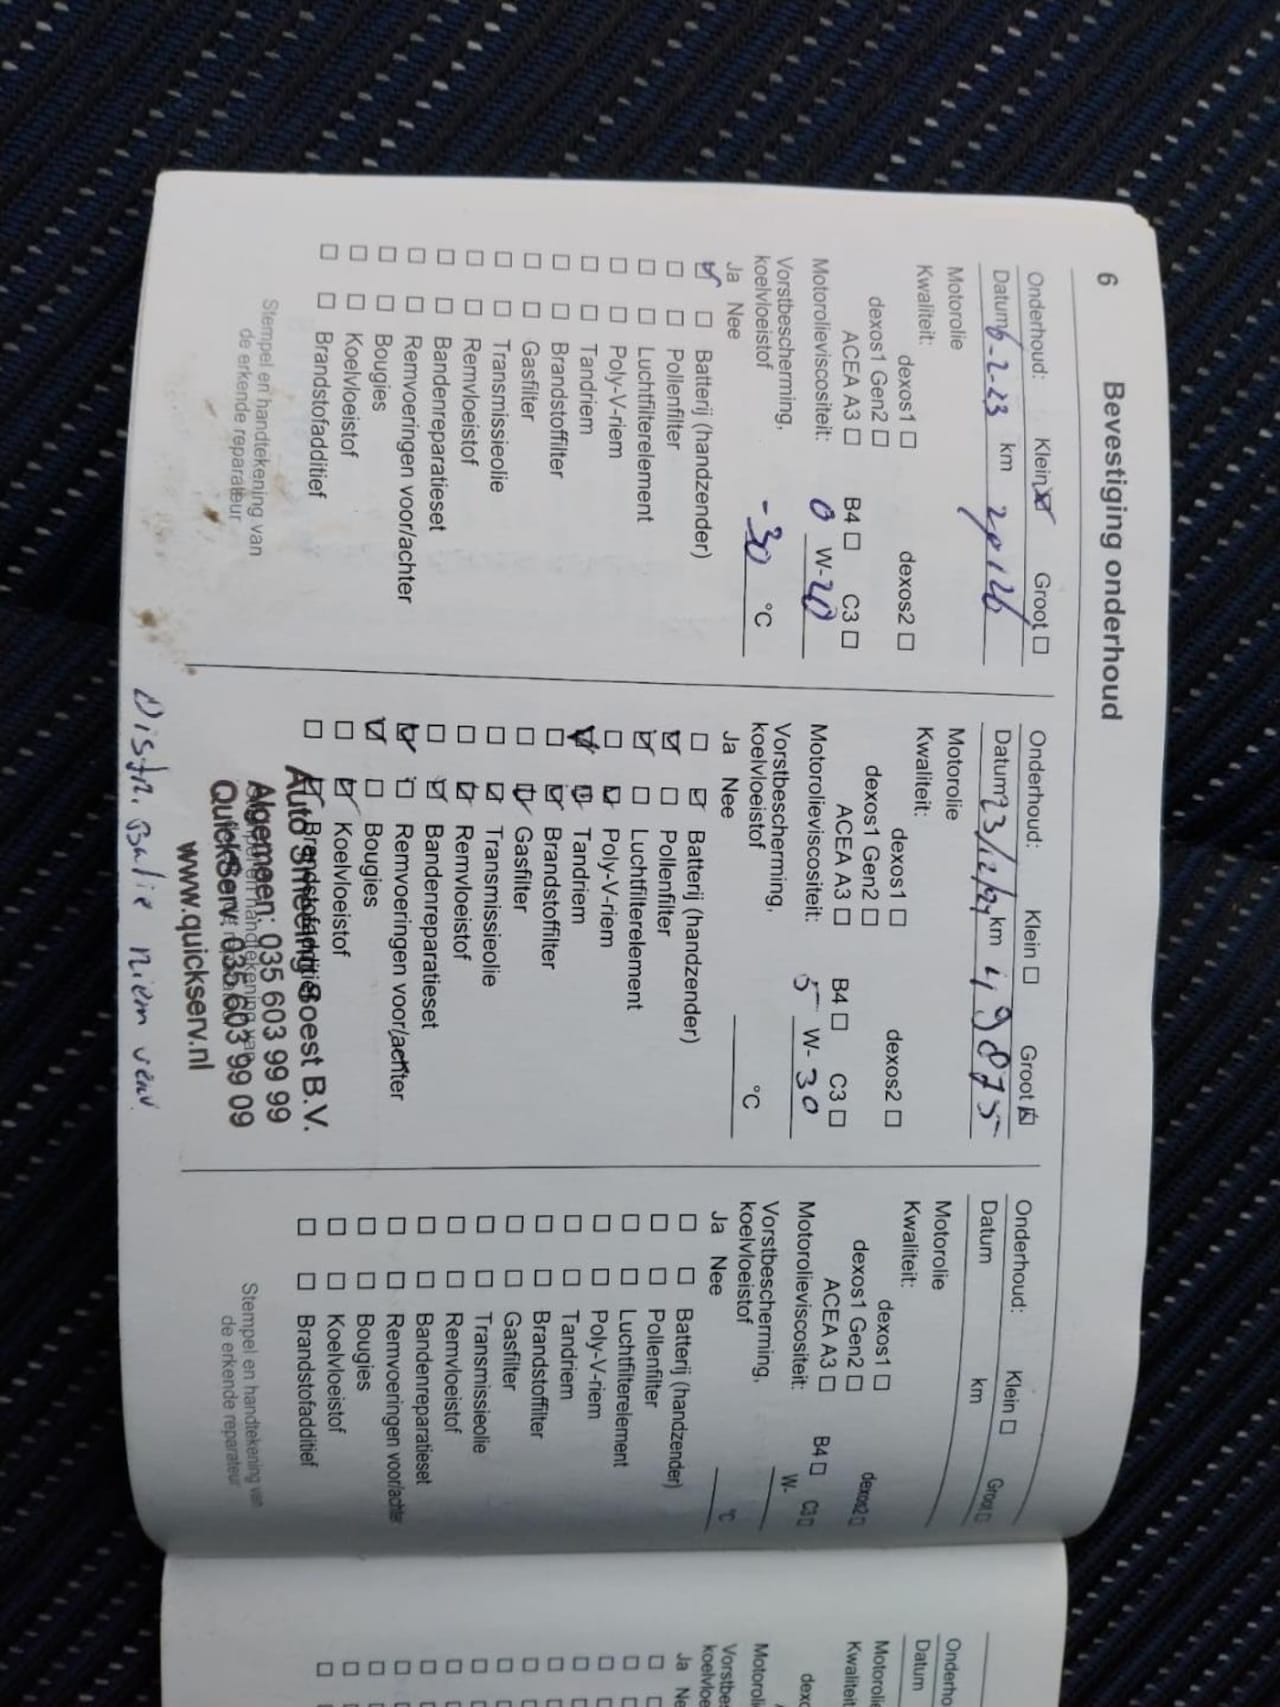 6 Bevestiging onderhoud
Onderhoud: Klein Groot
Datum 6-2-23 km
Motorolie
Kwaliteit: dexos1 dexos2
dexos1 Gen2
ACEA A3 B4 C3
Motorolieviscositeit: 0 W-20
Vorstbescherming,
koelvloeistof -30 °C
Ja Nee
Batterij (handzender)
Pollenfilter
Luchtfilterelement
Poly-V-riem
Tandriem
Brandstoffilter
Gasfilter
Transmissieolie
Remvloeistof
Bandenreparatieset
Remvoeringen voor/achter
Bougies
Koelvloeistof
Brandstofadditief
Stempel en handtekening van
de erkende reparateur
Onderhoud: Klein Groot
Datum 23/12/24 km 49875
Motorolie
Kwaliteit: dexos1 dexos2
dexos1 Gen2
ACEA A3 B4 C3
Motorolieviscositeit: 5 W-30
Vorstbescherming,
koelvloeistof °C
Ja Nee
Batterij (handzender)
Pollenfilter
Luchtfilterelement
Poly-V-riem
Tandriem
Brandstoffilter
Gasfilter
Transmissieolie
Remvloeistof
Bandenreparatieset
Remvoeringen voor/achter
Bougies
Koelvloeistof
Brandstofadditief
Auto Smeeing Soest B.V.
Algemeen: 035 603 99 99
QuickServ: 035 603 99 09
www.quickserv.nl
Distr. Balie riem
Onderhoud: Klein Groot
Datum km
Motorolie
Kwaliteit: dexos1 dexos2
dexos1 Gen2
ACEA A3 B4 C3
Motorolieviscositeit: W-
Vorstbescherming,
koelvloeistof °C
Ja Nee
Batterij (handzender)
Pollenfilter
Luchtfilterelement
Poly-V-riem
Tandriem
Brandstoffilter
Gasfilter
Transmissieolie
Remvloeistof
Bandenreparatieset
Remvoeringen voor/achter
Bougies
Koelvloeistof
Brandstofadditief
Stempel en handtekening van
de erkende reparateur
Onderho
Datum
Motorolie
Kwaliteit
dexo
Motoroli
Vorstbe
koelvloe
Ja Ne